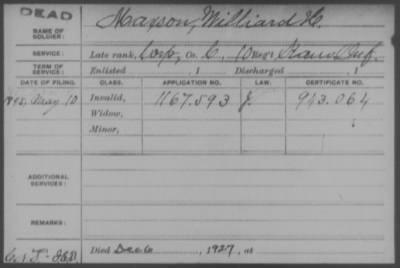 DEAD
Maxson, Milliard H.
NAME OF SOLDIER:
SERVICE: Late rank, Corp, Co. C, 10 Reg't Kans. Inf.
TERM OF SERVICE: Enlisted , 1 Discharged , 1
DATE OF FILING. CLASS. APPLICATION NO. LAW. CERTIFICATE NO.
May 10 Invalid, 1167.593 J. 943.064
Widow,
Minor,
ADDITIONAL SERVICES:
REMARKS:
Died Dec 6, 1927, at